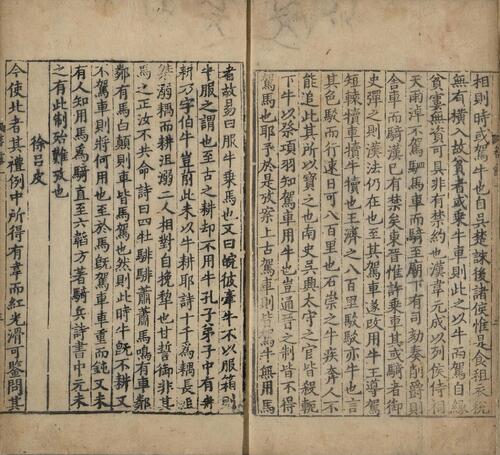 相則時或駕牛也自吳楚誅後諸侯惟是食租衣稅
無有橫入故貧者或乘牛車則此之以牛而駕自緣
貧窶無資可具非有禁約也漢韋元成以列侯侍祠
天雨淖不駕駟馬車而騎至廟下有司劾奏削爵則
舍車而騎漢已有禁矣東晉惟許乘車其或騎者御
史彈之則漢法仍在也至其駕車遂改用牛王導駕
短轅犢車犢牛犢也王濟之八百里駮駮亦牛也言
其色駮而行速日可八百里也石崇之牛疾奔人不
能追此其所以寶之也南史吳興太守之官皆殺軛
下牛以祭項羽知駕車用牛也豈通晉之制皆不得
駕馬也耶予於是放案上古駕車則皆馬牛無用馬
者故易曰服牛乘馬也又曰皖彼牽牛不以服箱則
牛服之謂也至古之耕却不用牛孔子弟子中有冉
耕乃字伯牛豈前此未以牛耕耶詩十千爲耦長沮
桀溺耦而耕沮溺二人相對自挽犂也甘誓御非其
馬之正汝不共命詩曰四牡騑騑蕭蕭馬鳴有車鄰
鄰有馬白顛則車皆馬駕也然則此時牛旣不耕又
不駕車則將何用也至於馬旣駕車車重而鈍又未
有人知用馬爲騎直至六韜方著騎兵詩書中元未
之有此制殆難攷也
徐呂皮
今使北者其禮例中所得有韋而紅光滑可鑒問其